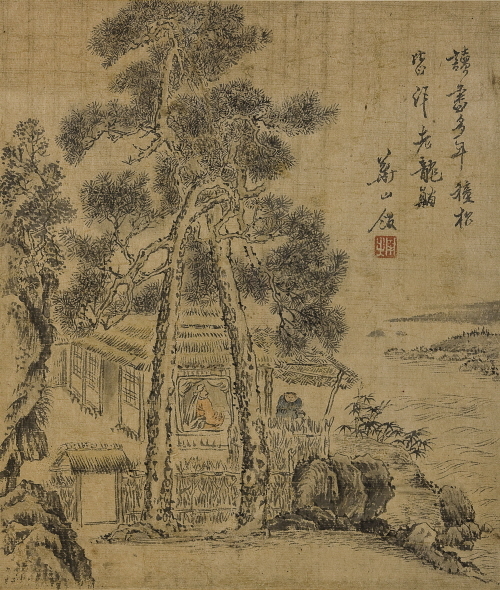 讀書多年種松
皆作老龍鱗
山